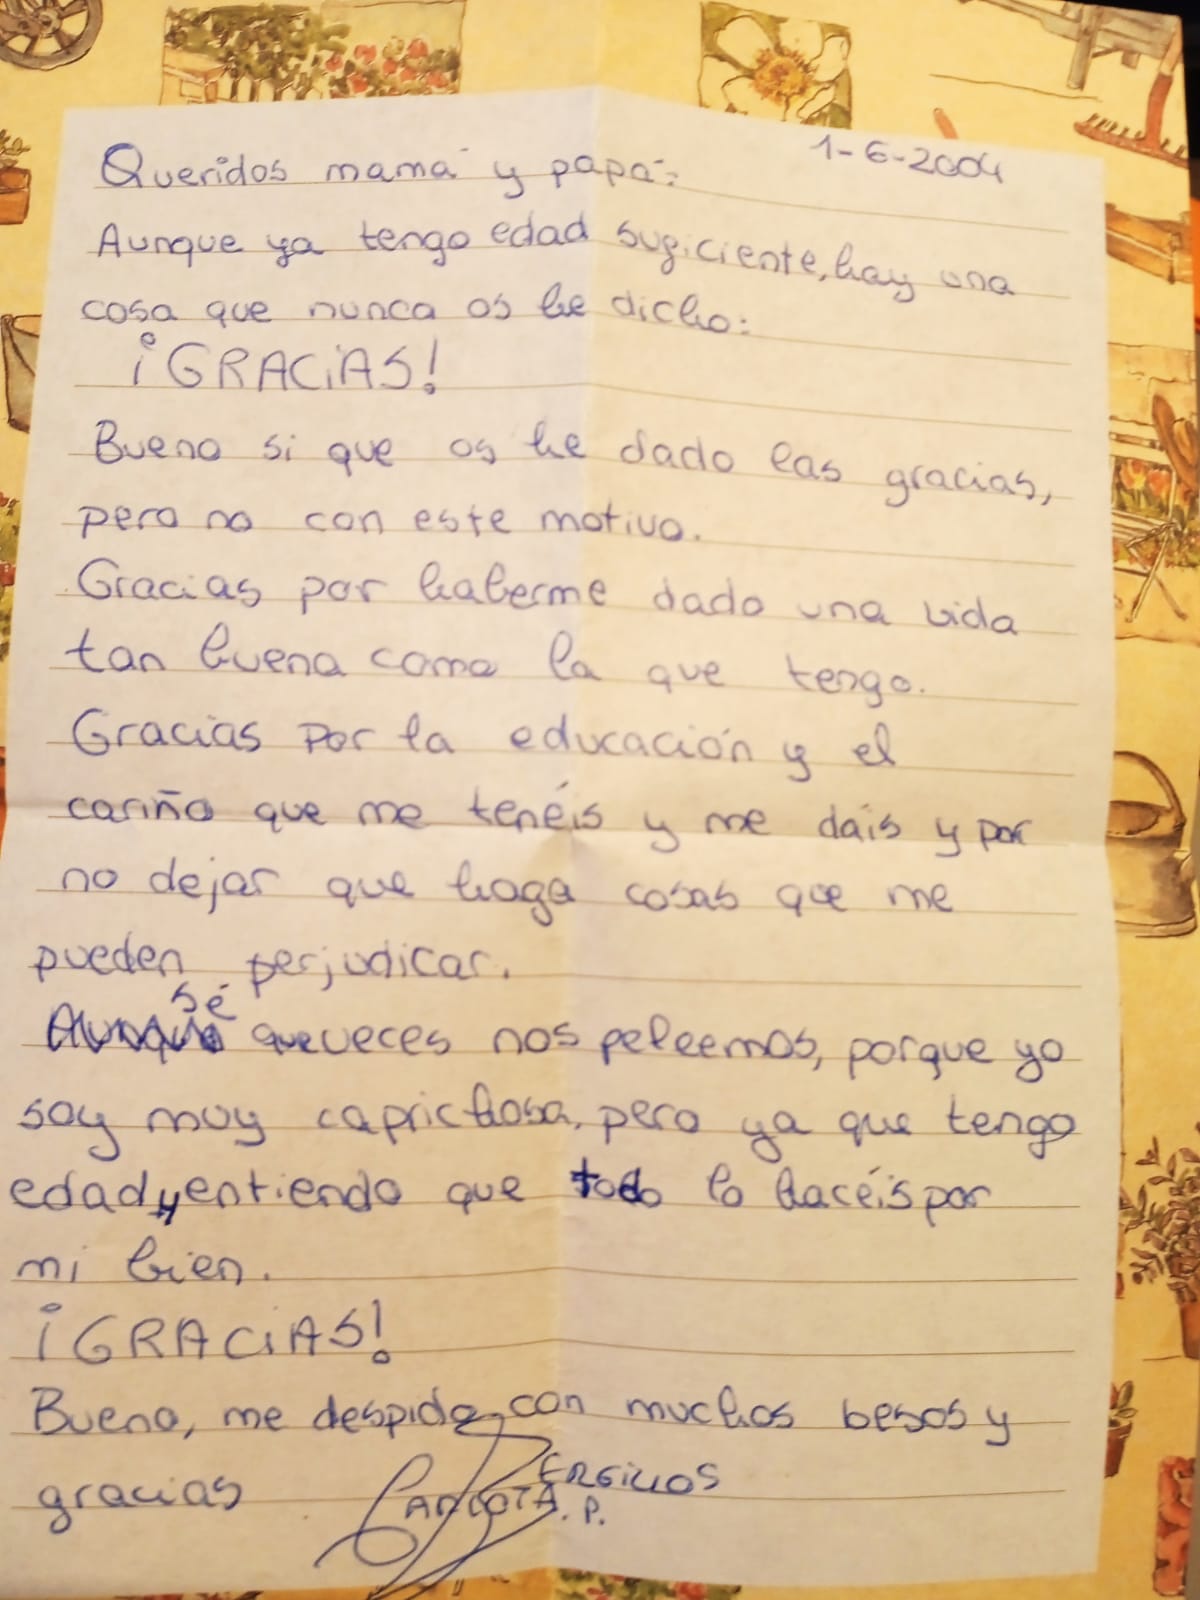 1-6-2004
Queridos mamá y papá:
Aunque ya tengo edad suficiente, hay una
cosa que nunca os he dicho:
¡GRACIAS!
Bueno si que os he dado las gracias,
pero no con este motivo.
Gracias por haberme dado una vida
tan buena como la que tengo.
Gracias por la educación y el
cariño que me tenéis y me dais y por
no dejar que haga cosas que me
pueden perjudicar.
Sé
que veces nos peleemos, porque yo
soy muy caprichosa, pero ya que tengo
edad y entiendo que todo lo hacéis por
mi bien.
¡GRACIAS!
Bueno, me despido con muchos besos y
gracias
CARLOTA
P.